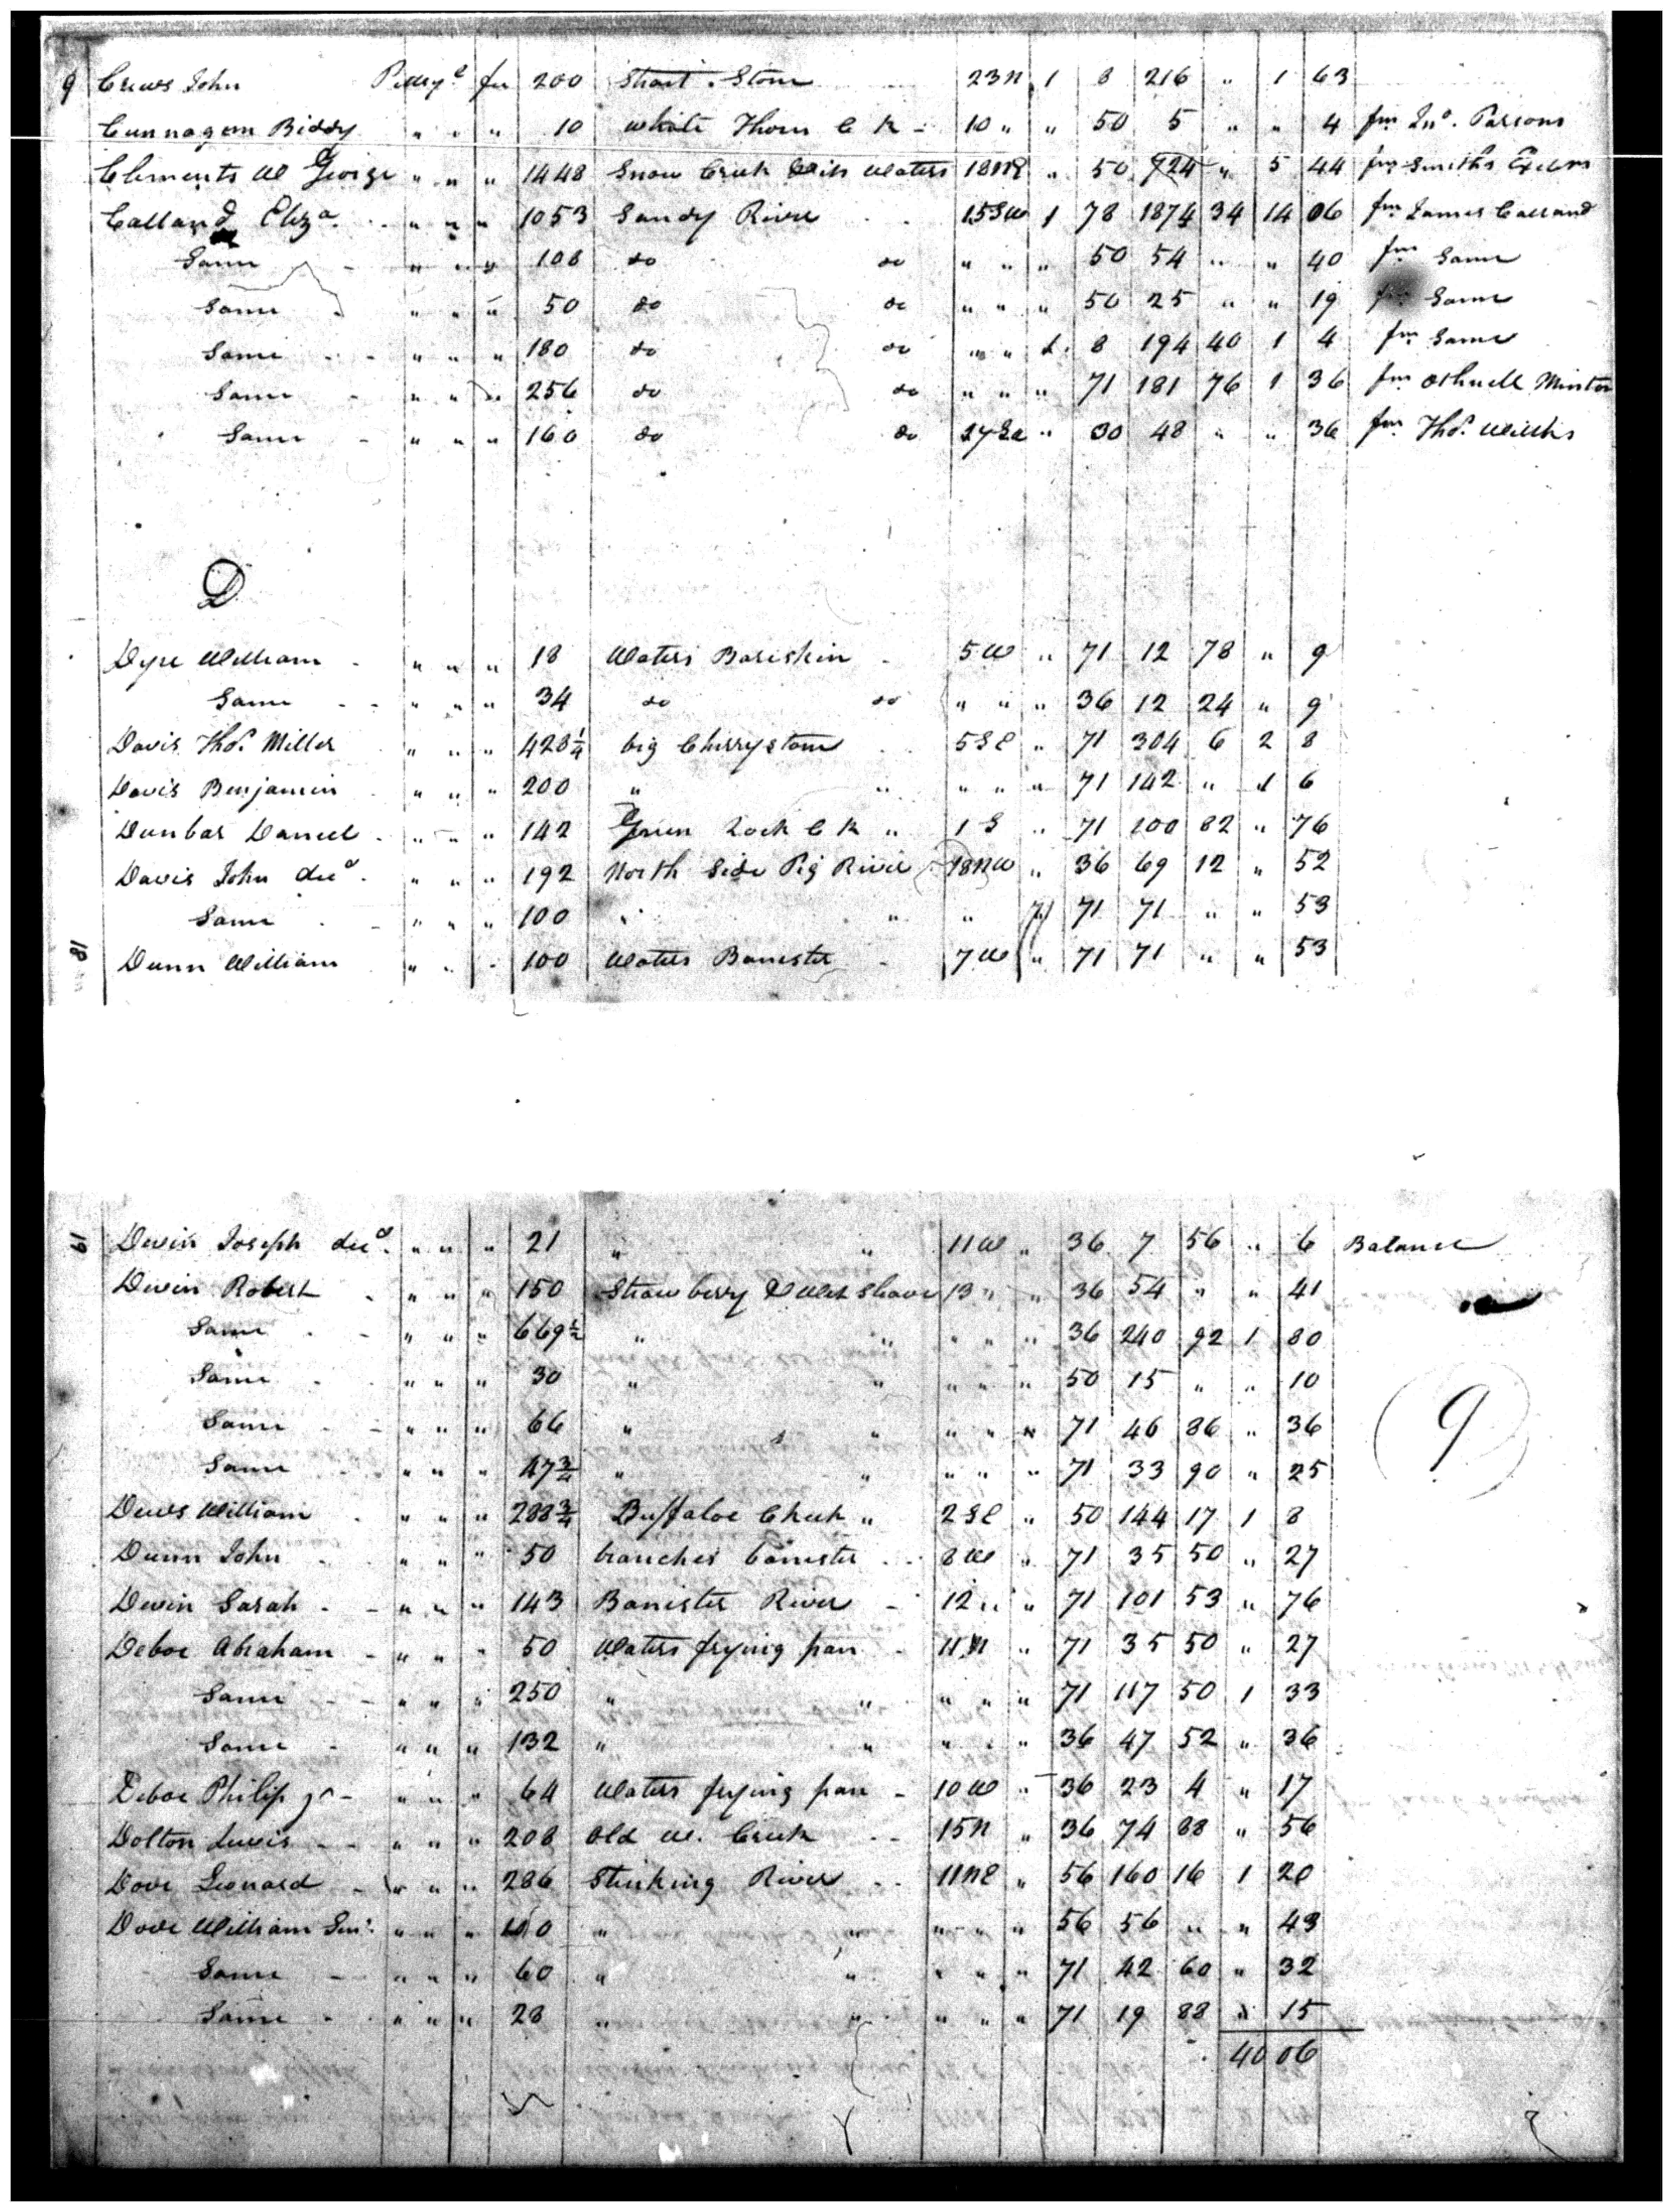 9 Crews John Pittsyᵃ fee 200 Strait Stone 23N 1 8 216 " 1 63
Cunnagem Biddy " " " 10 white Thorn C K - 10 " " 50 5 " " 4 fm Jnº. Parsons
Clements W George " " " 1448 Snow Creek waters 18NE " 50 724 " 5 44 fm Smiths Exters
Calland Elizᵃ " " " 1053 Sandy River 15SW 1 78 1874 34 14 06 fm James Calland
Same " " " 108 do do " " " 50 54 " " 40 fm Same
Same " " " 50 do do " " " 50 25 " " 19 fm Same
Same " " " 180 do do " " 1 8 194 40 1 4 fm Same
Same " " " 256 do do " " " 71 181 76 1 36 fm Othnell Minter
Same " " " 160 do do " 30 48 " " 36 fm Thoˢ.
D
Dyre William " " " 18 Waters Bariskin 5W " 71 12 78 " 9
Same " " " 34 do do " " " 36 12 24 " 9
Davis Thoˢ. Miller " " " 428¼ big Cherrystone 5SE " 71 304 6 2 8
Davis Benjamin " " " 200 " " " " " 71 142 " 1 6
Dunbar Daniel " " " 142 Green Rock C K " 1 S " 71 100 82 " 76
Davis John decᵈ. " " " 192 North Side Pig River 18NW " 36 69 12 " 52
Same " " " 100 " " " 71 71 " " 53
18 Dunn William " " " 100 Waters Banister 7W " 71 71 " " 53
19 Devin Joseph decᵈ. " " " 21 " " 11W " 36 7 56 " 6 Balance
Devin Robert " " " 150 Strawberry & Whet Stone 13 " " 36 54 " " 41
Same " " " 669½ " " " " " 36 240 92 1 80
Same " " " 30 " " " " " 50 15 " " 10
Same " " " 66 " " " " " 71 46 86 " 36
Same " " " 47¾ " " " " " 71 33 90 " 25
9
Dews William " " " 288¾ Buffaloe Creek " 2SE " 50 144 17 1 8
Dunn John " " " 50 branches banister 8W " 71 35 50 " 27
Devin Sarah " " " 143 Banister River 12 " " 71 101 53 " 76
Deboe Abraham " " " 50 Waters frying pan 11N " 71 35 50 " 27
Same " " " 250 " " " " " 71 117 50 1 33
Same " " " 132 " " " " " 36 47 52 " 36
Deboe Philip jr " " " 64 Waters frying pan 10W " 36 23 4 " 17
Dolton Lewis " " " 208 Old W. Creek 15N " 36 74 88 " 56
Dove Leonard " " " 286 Stinking River 11NE " 56 160 16 1 20
Dove William Senʳ. " " " 100 " " " " " 56 56 " " 43
Same " " " 60 " " " " " 71 42 60 " 32
Same " " " 28 " " " " " 71 19 88 " 15
40 06